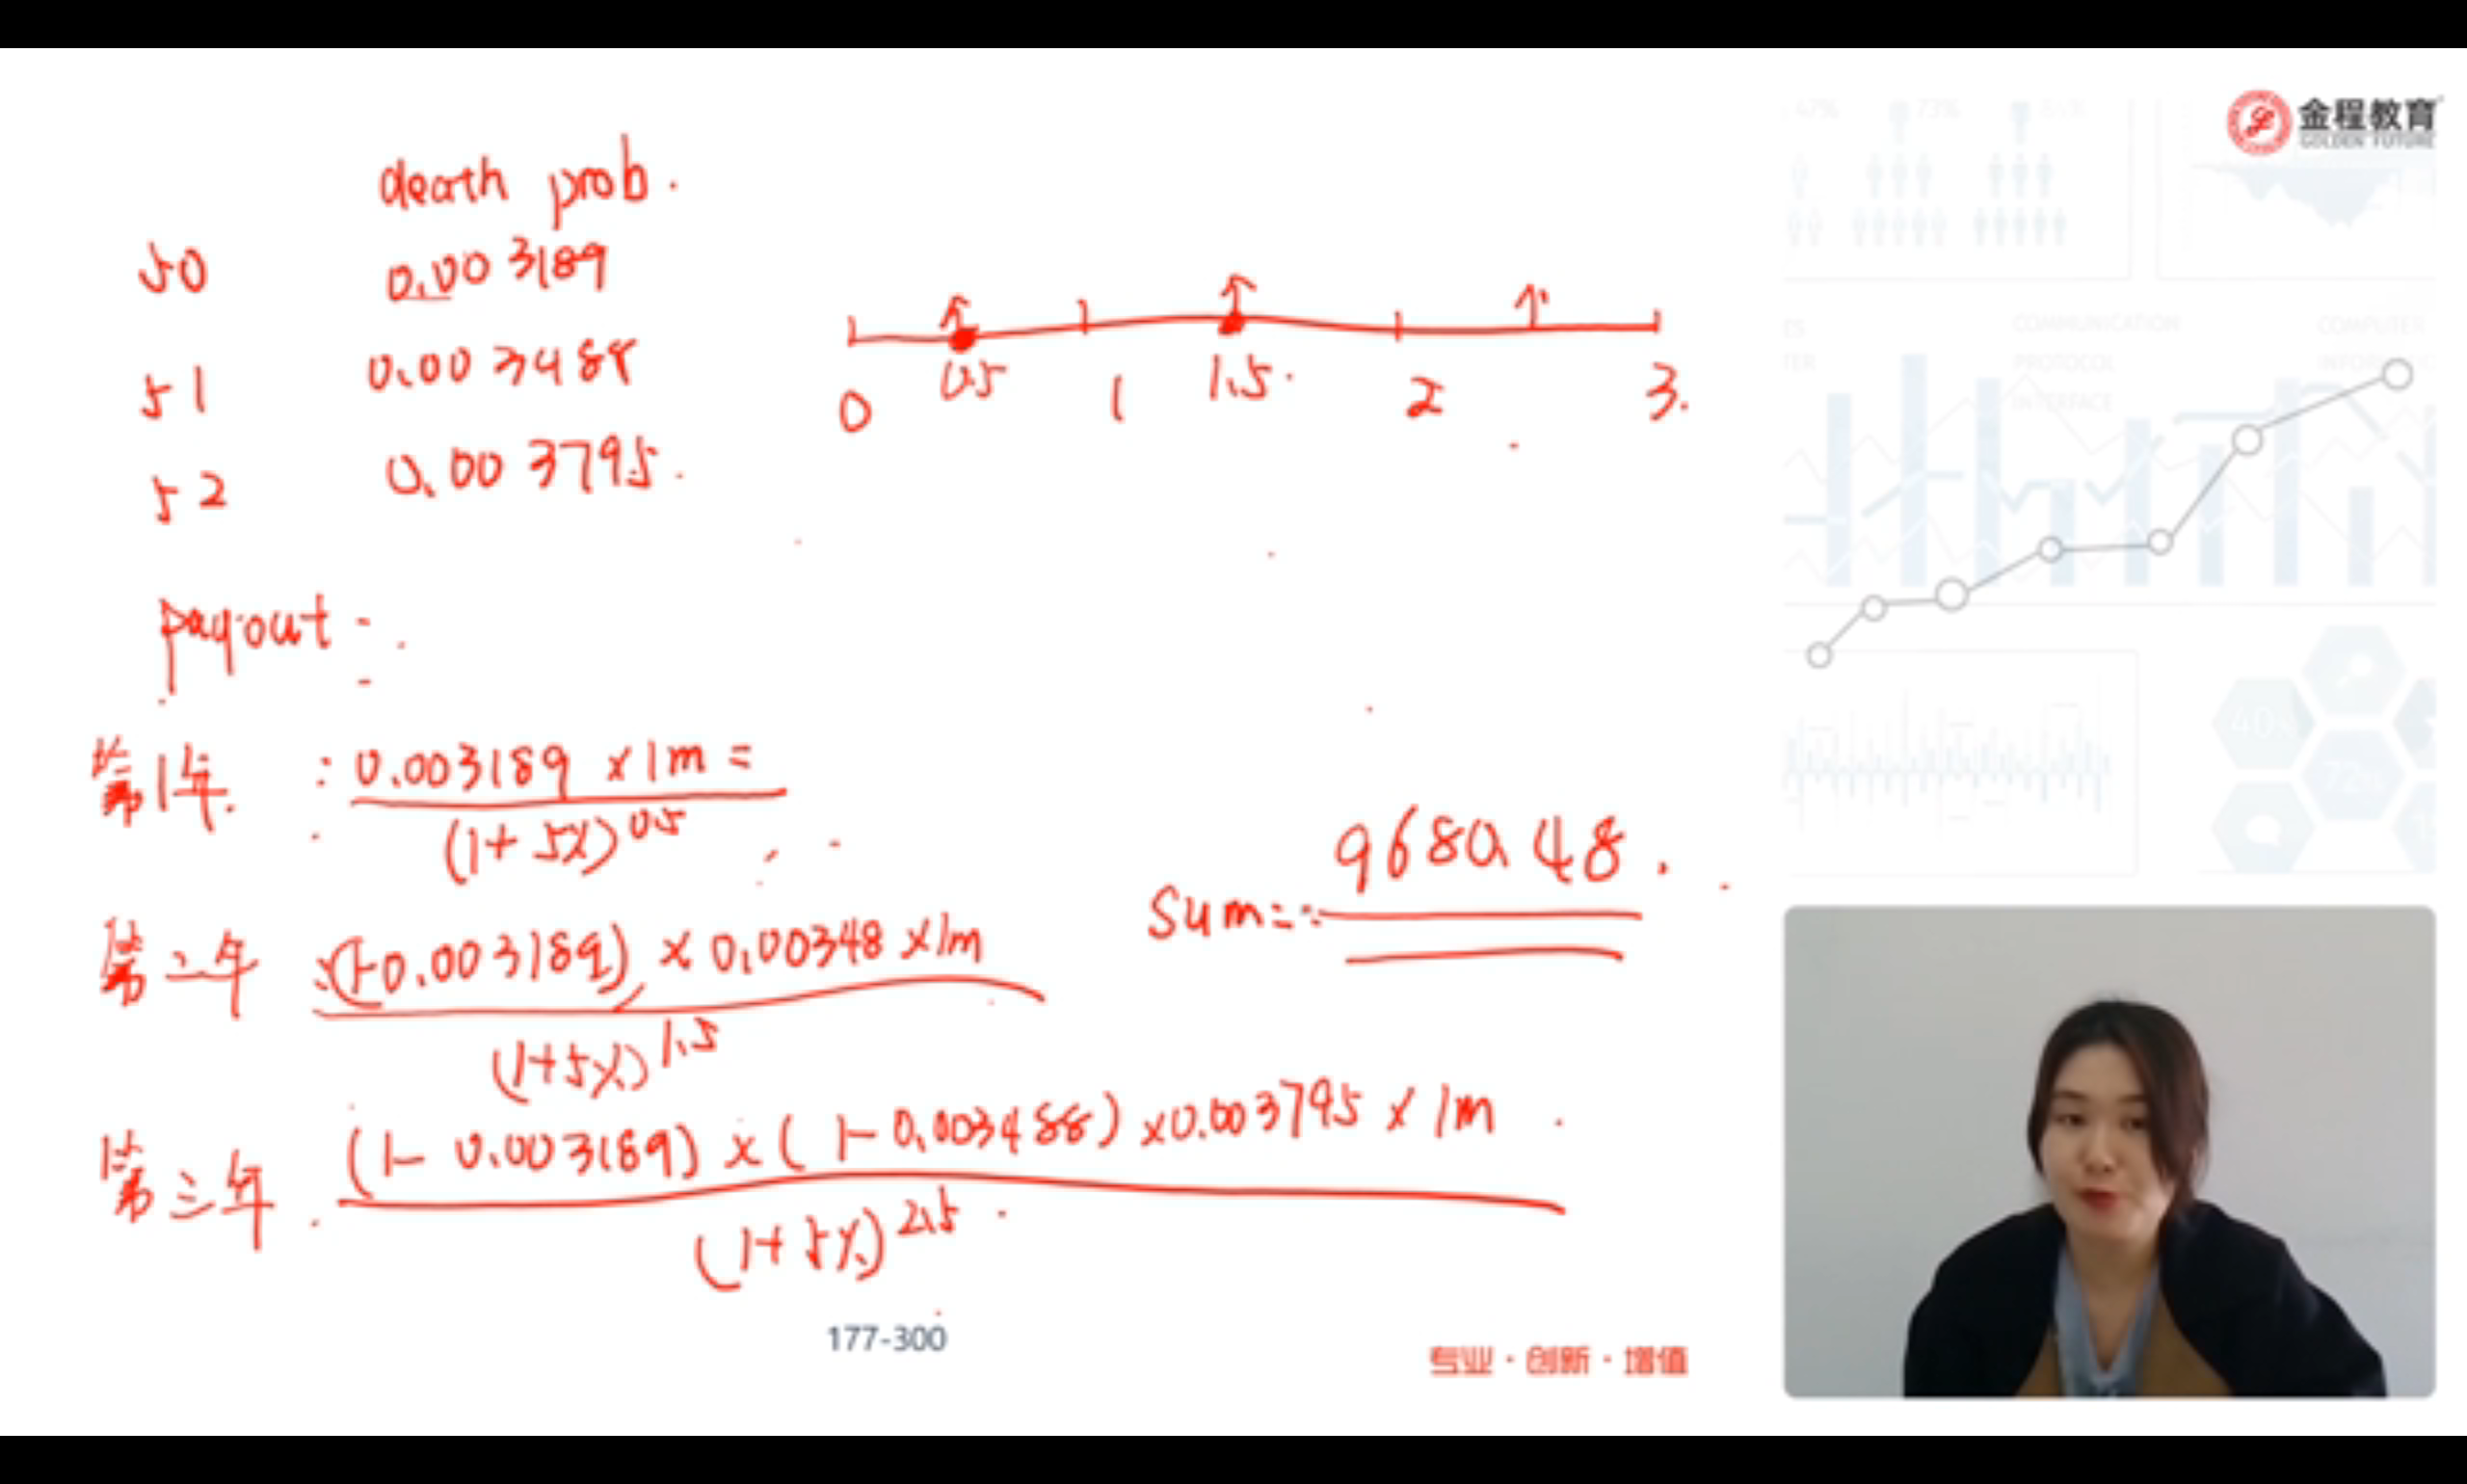 金程教育
GOLDEN FUTURE
47%
73%
death prob.
50 0.003189
51 0.003488
52 0.003795.
0 0.5 1 1.5. 2 3.
COMMUNICATION
PROTOCOL
INTERFACE
COMPUTER
payout :
第1年. : 0.003189 × 1m =
(1+5%)^0.5
sum = 9680.48.
第二年 : (1-0.003189) × 0.00348 × 1m
(1+5%)^1.5
第三年. (1-0.003189) × (1-0.003488) × 0.003795 × 1m
(1+5%)^2.5
40%
72%
177-300
专业·创新·增值